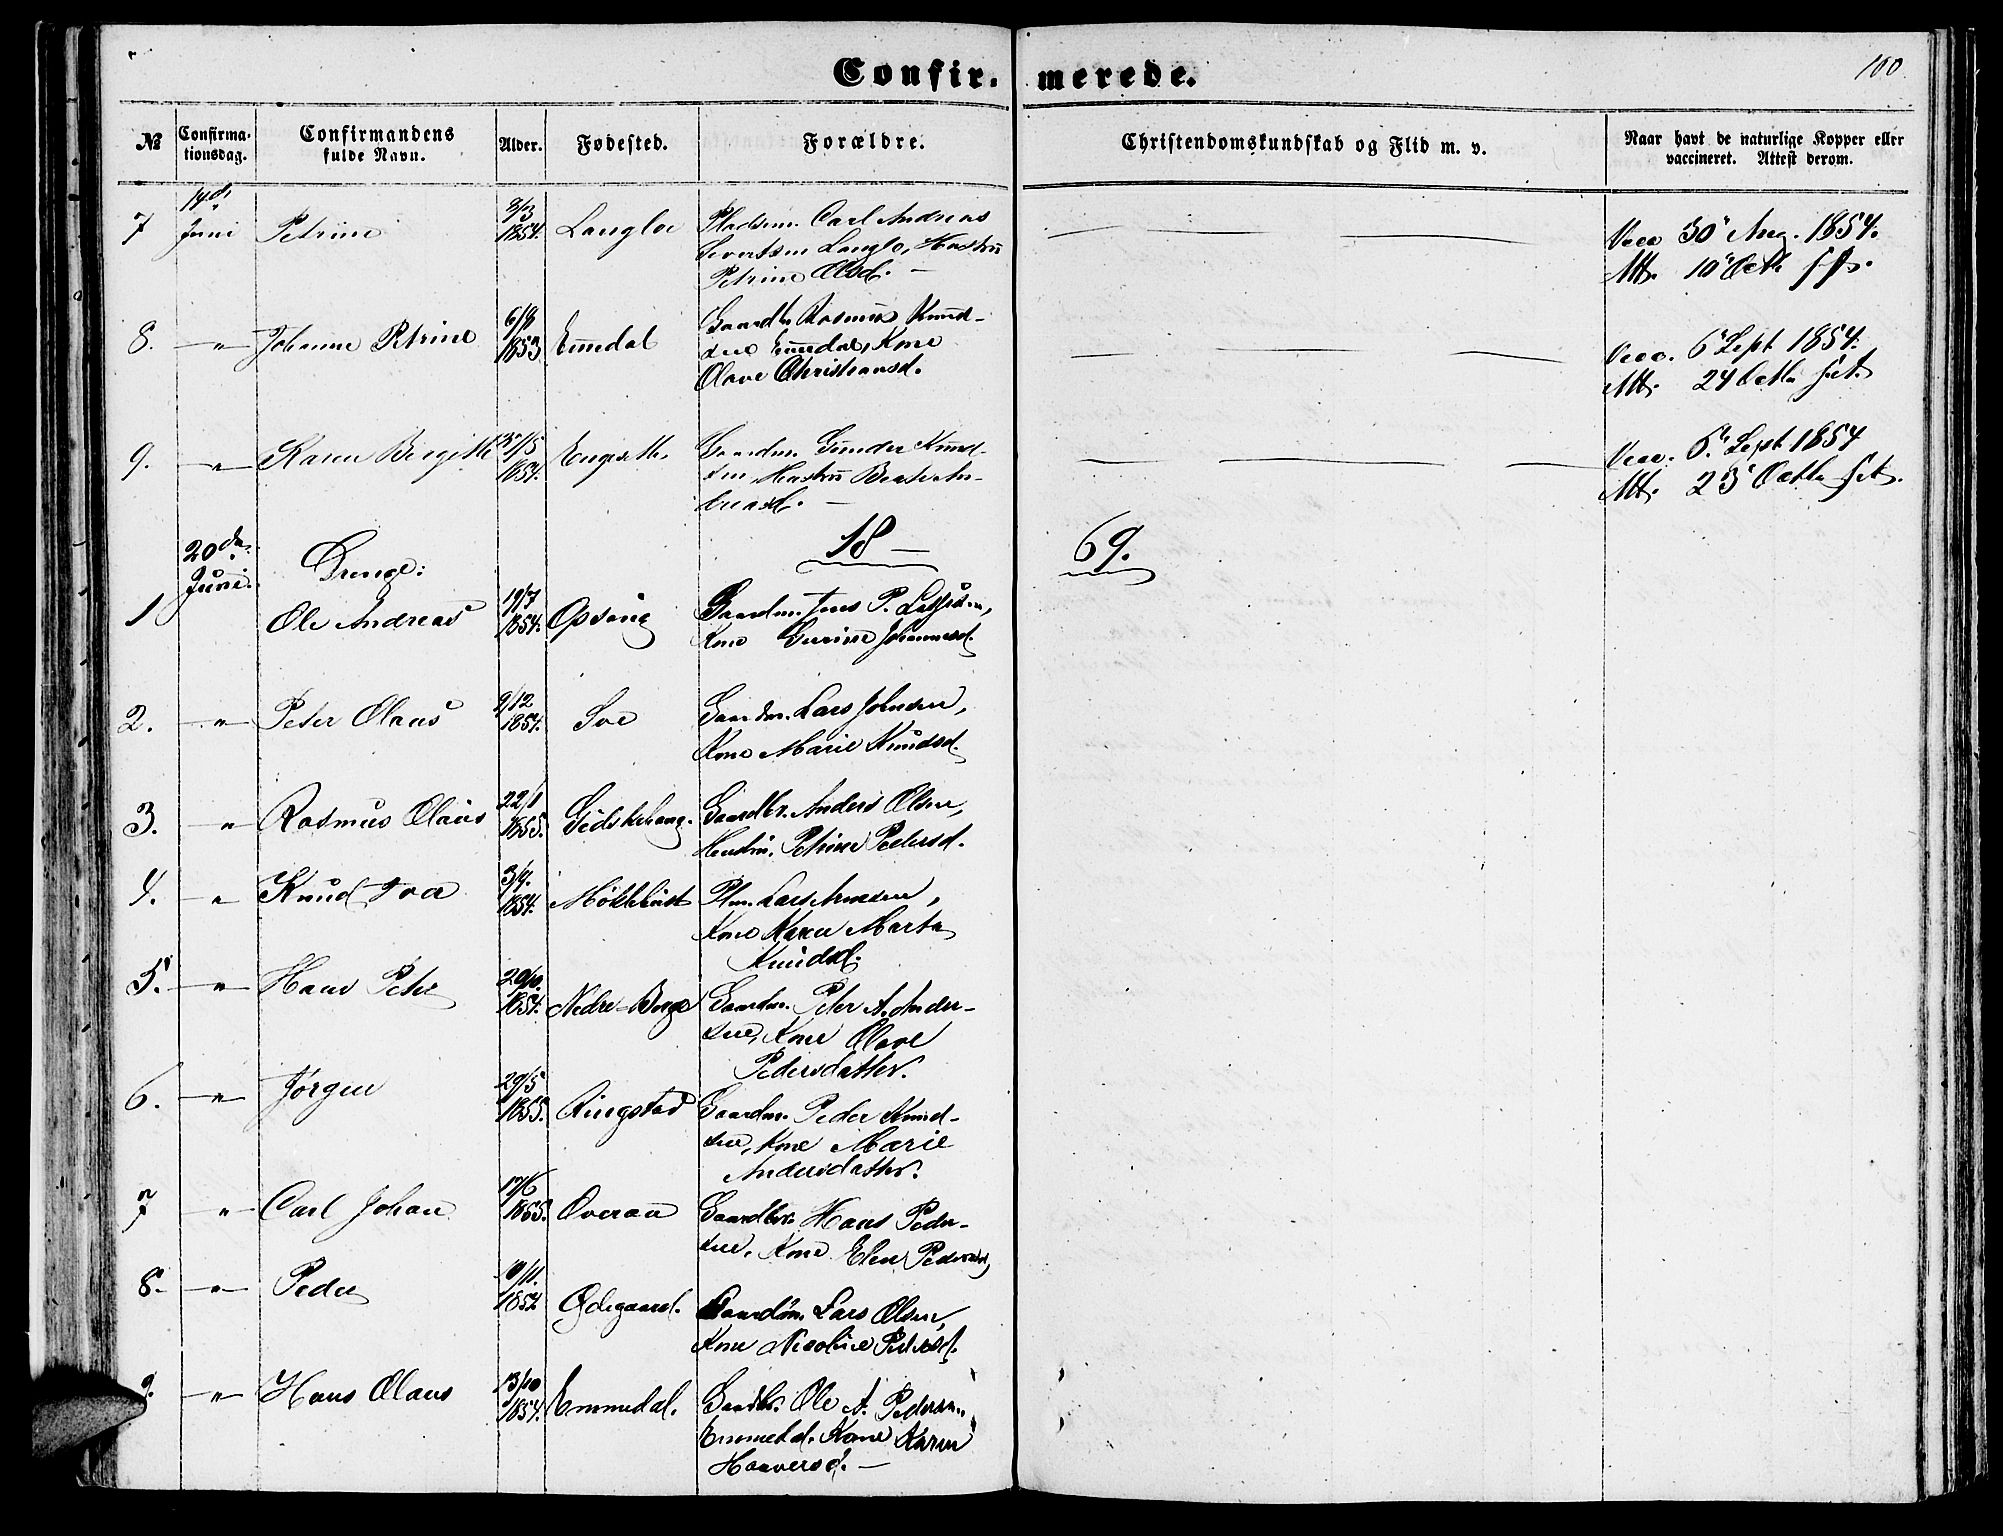 100
Confir. merede.
№ Confirma-tionsdag. Confirmandens fulde Navn. Alder. Fødested. Forældre. Christendomskundskab og Flid m. v. Naar havt de naturlige Kopper eller vaccineret. Attest derom.
7 14de Juni Petrine 3/3 1854. Langloe Pladsm. Carl Andreas
Sivertsen Langlo, Hustru
Petrine Olsd. —
Vacc 30 Aug. 1854.
Att. 10 Octb
8. — " — Johanne Petrine 6/8 1853 Emedal Gaardbr. Rasmus Knud-
sen Emedal, Kone
Olave Christiansd.
Vacc. 6 Sept 1854.
Att. 24 Octb
9. — " — Karen Birgitte /5 1854. Gaardm. Gunder Knud-
sen, Hustru Beate An-
dreasd. —
Vacc. 6. Sept 1854
Att. 23 Octb
18 —
69.
20de Juni. Drenge:
1 Ole Andreas 19/7 1854. Opsang Gaardm. Jens P.
Kone Gurine Johannesd.
2. — " — Peter Olaus 9/12 1854. Soe Gaardm. Lars Johnsen,
Kone Marie Knudsd.
3. " — Rasmus Olaus 22/1 1855. Gaardbr. Anders Olsen,
Hustru. Petrine Pedersd.
4. — " — Knud Iva 3/4. 1854. Møklebust Plm. Lars
Kone Karen Marta
Knudsd.
5. — " — Hans Peter 29/10. 1854. Nedre-Berge Gaardm. Peter A. Ander-
sen, Kone Olave
Pedersdatter.
6. — " — Jørgen 29/5 1855. Ringstad Gaardm. Peder Knud-
sen, Kone Marie
Andersdatter.
7 " — Carl Johan 17/6 1855. Overaa Gaardbr. Hans Peder-
sen, Kone Elen Pedersd.
8. — " — Peder 10/11. 1854 Ødegaard. Gaardm. Lars Olsen,
Kone Nicoline Pedersd.
9. — " — Hans Olaus 13/10 1854. Emmedal. Gaardbr. Ole A. Pedersen,
Emmedal. Kone Karen
Haaversd. —